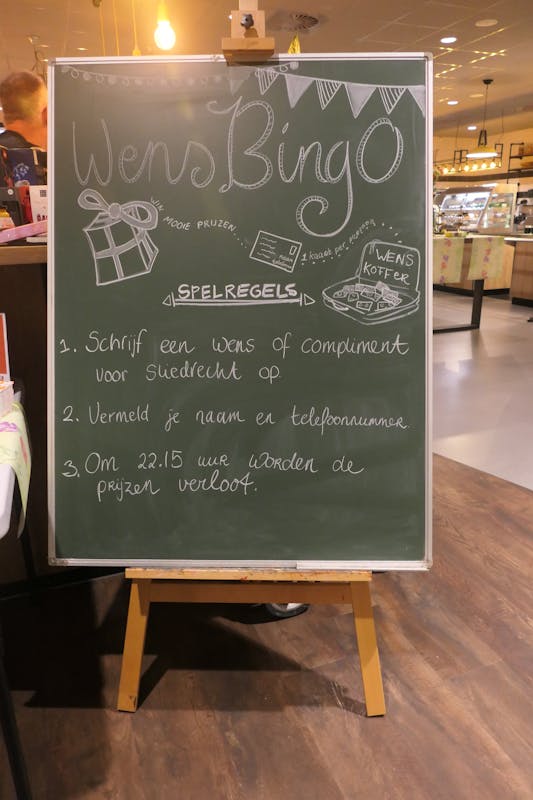 WensBingO
WIN MOOIE PRIJZEN...
1 kaart per persoon
WENS
KOFFER
SPELREGELS
1. Schrijf een wens of compliment
voor Sliedrecht op.
2. Vermeld je naam en telefoonnummer.
3. Om 22.15 uur worden de
prijzen verloot.